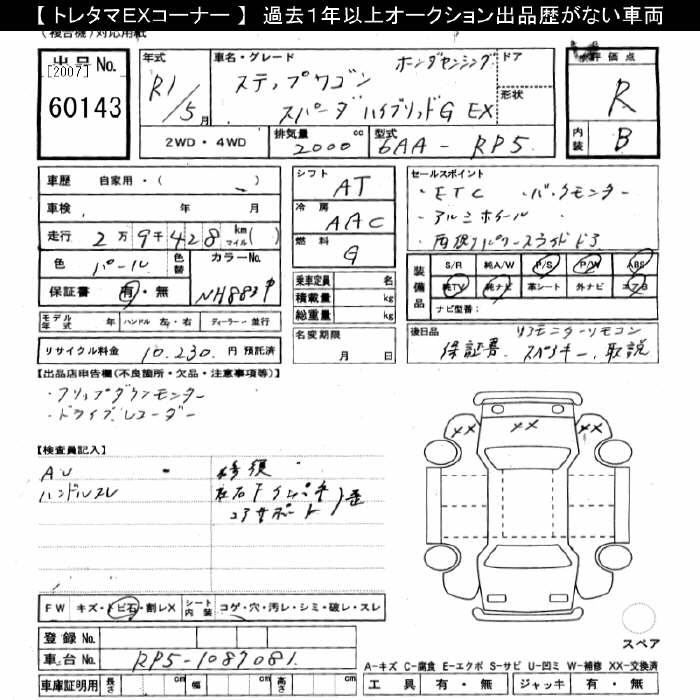 【 トレタマEXコーナー 】 過去1年以上オークション出品歴がない車両
(複合機)対応用紙
出品No.
[2007]
60143
年式
R1/5月
車名・グレード
ホンダセンシング
ステップワゴン
スパーダ ハイブリッドG EX
ドア
形状
2WD・4WD
排気量 2000 cc
型式 6AA-RP5
評価点
R
内装 B
車歴 自家用・( )
車検 年 月
走行 2万9千428 km マイル( )
色 パール
色替
カラーNo. NH883P
保証書 有・無
モデル年式 年 ハンドル 左・右 ディーラー・並行
リサイクル料金 10.230. 円 預託済
シフト AT
冷房 AAC
燃料 G
乗車定員 名
積載量 kg
総重量 kg
名変期限
月 日
セールスポイント
・ETC ・バックモニター
・アルミホイール
・両側パワースライドドア
装備品
S/R 純A/W P/S P/W ABS
純TV 純ナビ 革シート 外ナビ エアB
ナビ型番:
後日品
リアモニターリモコン
保証書、スペアキー、取説
【出品店申告欄(不良箇所・欠品・注意事項等)】
・フリップダウンモニター
・ドライブレコーダー
【検査員記入】
AU
ハンドルスレ
修須
コアサポート
XX
XX
FW キズ・トビ石・割レX
シート内装 コゲ・穴・汚レ・シミ・破レ・スレ
登録No.
車台No. RP5-1087081
車庫証明用 長さ cm 幅 cm 高さ cm
スペア
A-キズ C-腐食 E-エクボ S-サビ U-凹ミ W-補修 XX-交換済
工具 有・無 ジャッキ 有・無